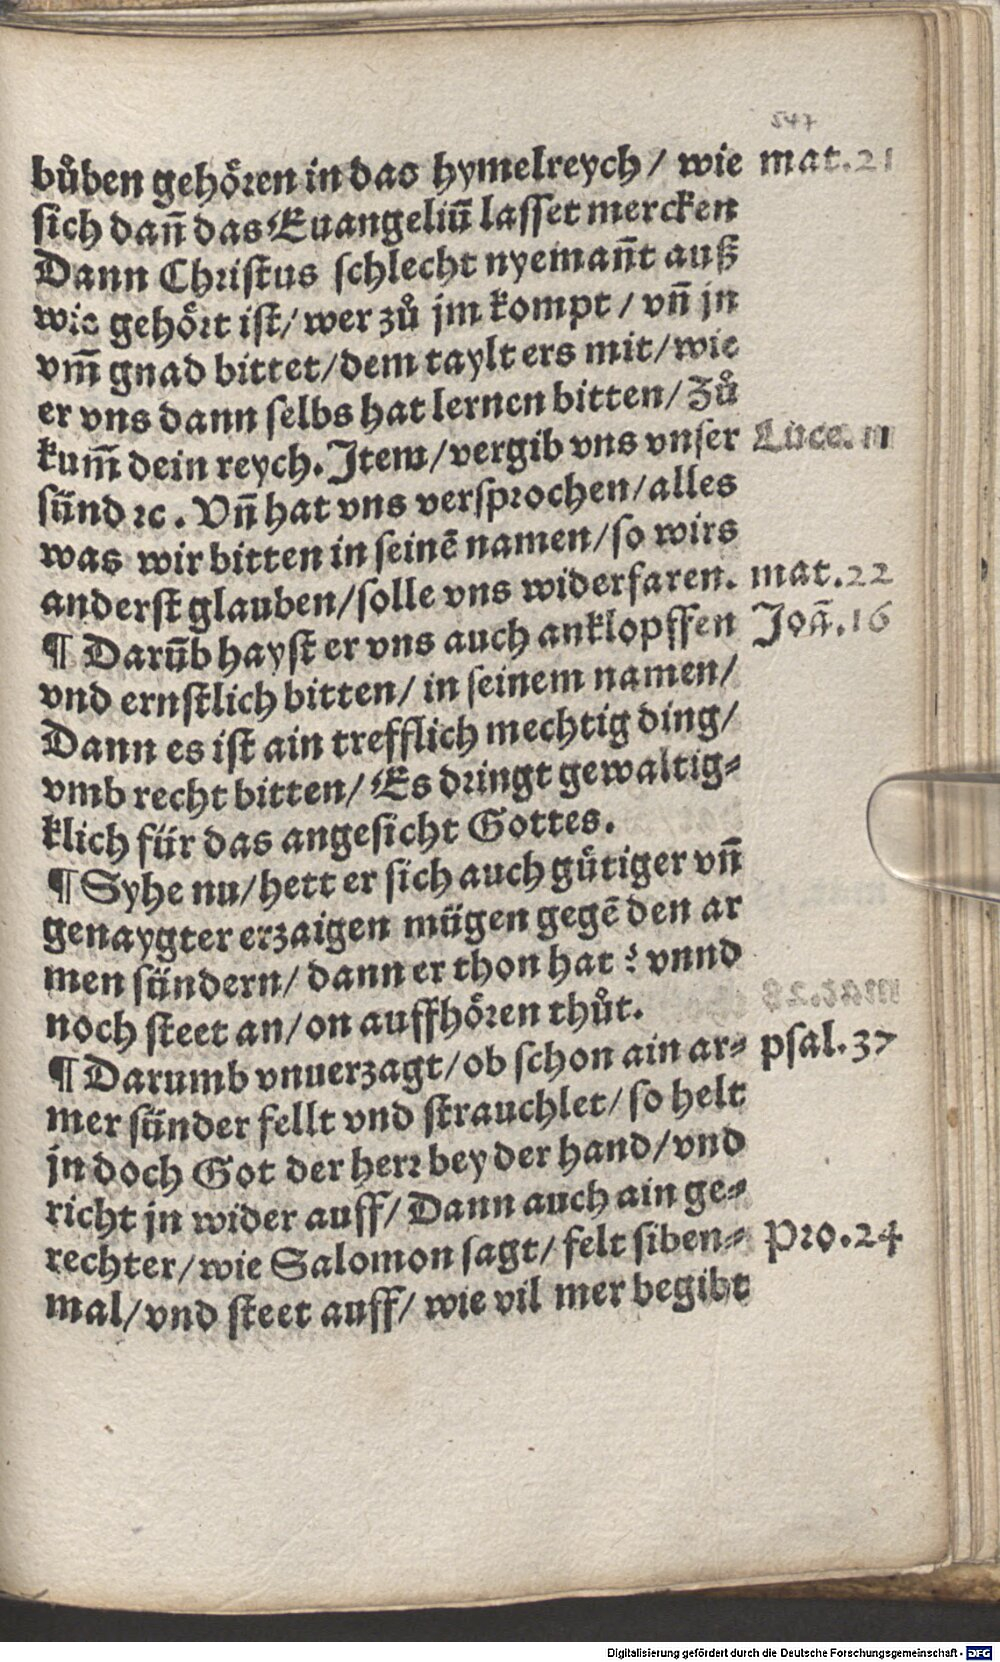 547
bůben gehoͤren in das hymelreych / wie mat.21
sich dañ das Euangeliũ lasset mercken
Dann Christus schlecht nyemañt auß
wie gehoͤrt ist/ wer zů jm kompt / vñ jn
vm̃ gnad bittet/dem taylt ers mit/wie
er vns dann selbs hat lernen bitten/ Zů
kum̃ dein reych. Item/vergib vns vnser Luce. 11
sünd ꝛc. Vñ hat vns versprochen/alles
was wir bitten in seinẽ namen/so wirs
anderst glauben/solle vns widerfaren. mat.22
¶ Darũb hayst er vns auch anklopffen Joã.16
vnd ernstlich bitten/ in seinem namen/
Dann es ist ain trefflich mechtig ding/
vmb recht bitten/ Es dringt gewaltig⸗
klich für das angesicht Gottes.
¶ Syhe nu/hett er sich auch gütiger vñ
genaygter erzaigen mügen gegẽ den ar
men sündern/ dann er thon hat ? vnnd
noch steet an/on auffhoͤren thůt.
¶ Darumb vnuerzagt/ob schon ain ar⸗ psal.37
mer sünder fellt vnd strauchlet/ so helt
jn doch Got der herr bey der hand/vnd
richt jn wider auff/ Dann auch ain ge⸗
rechter/wie Salomon sagt/ felt siben⸗ Pro.24
mal/vnd steet auff/ wie vil mer begibt
Digitalisierung gefördert durch die Deutsche Forschungsgemeinschaft - DFG